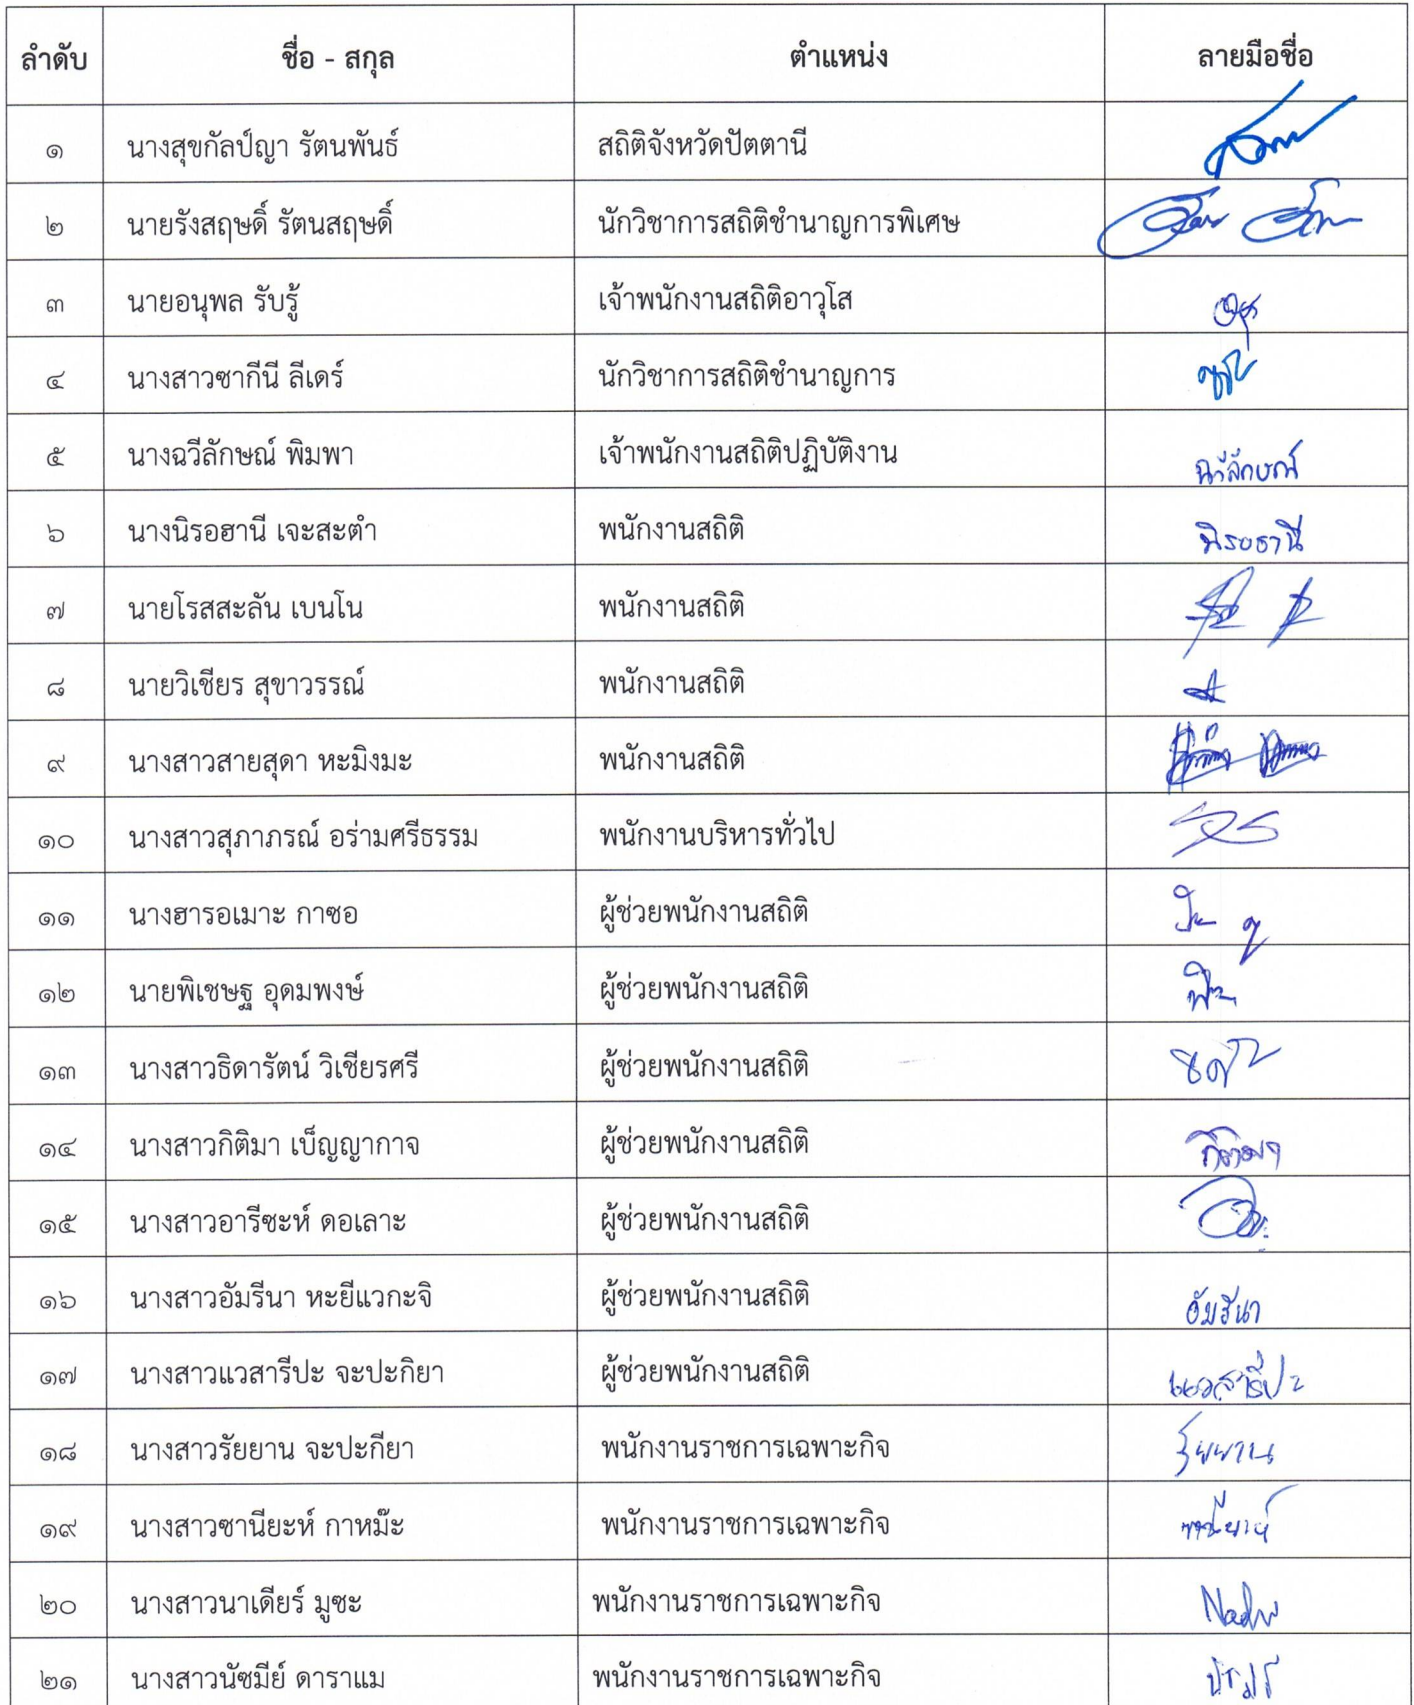 ลำดับ ชื่อ - สกุล ตำแหน่ง ลายมือชื่อ
๑ นางสุขกัลป์ญา รัตนพันธ์ สถิติจังหวัดปัตตานี
๒ นายรังสฤษดิ์ รัตนสฤษดิ์ นักวิชาการสถิติชำนาญการพิเศษ
๓ นายอนุพล รับรู้ เจ้าพนักงานสถิติอาวุโส
๔ นางสาวซากีนี ลีเดร์ นักวิชาการสถิติชำนาญการ
๕ นางฉวีลักษณ์ พิมพา เจ้าพนักงานสถิติปฏิบัติงาน ฉวีลักษณ์
๖ นางนิรอฮานี เจะสะตำ พนักงานสถิติ นิรอฮานี
๗ นายโรสสะลัน เบนโน พนักงานสถิติ
๘ นายวิเชียร สุขาวรรณ์ พนักงานสถิติ
๙ นางสาวสายสุดา หะมิงมะ พนักงานสถิติ
๑๐ นางสาวสุภาภรณ์ อร่ามศรีธรรม พนักงานบริหารทั่วไป
๑๑ นางฮารอเมาะ กาซอ ผู้ช่วยพนักงานสถิติ
๑๒ นายพิเชษฐ อุดมพงษ์ ผู้ช่วยพนักงานสถิติ
๑๓ นางสาวธิดารัตน์ วิเชียรศรี ผู้ช่วยพนักงานสถิติ
๑๔ นางสาวกิติมา เบ็ญญากาจ ผู้ช่วยพนักงานสถิติ
๑๕ นางสาวอารีซะห์ ดอเลาะ ผู้ช่วยพนักงานสถิติ
๑๖ นางสาวอัมรีนา หะยีแวกะจิ ผู้ช่วยพนักงานสถิติ อัมรีนา
๑๗ นางสาวแวสารีปะ จะปะกิยา ผู้ช่วยพนักงานสถิติ แวสารีปะ
๑๘ นางสาวรัยยาน จะปะกียา พนักงานราชการเฉพาะกิจ รัยยาน
๑๙ นางสาวซานียะห์ กาหม๊ะ พนักงานราชการเฉพาะกิจ
๒๐ นางสาวนาเดียร์ มูซะ พนักงานราชการเฉพาะกิจ
๒๑ นางสาวนัซมีย์ ดาราแม พนักงานราชการเฉพาะกิจ